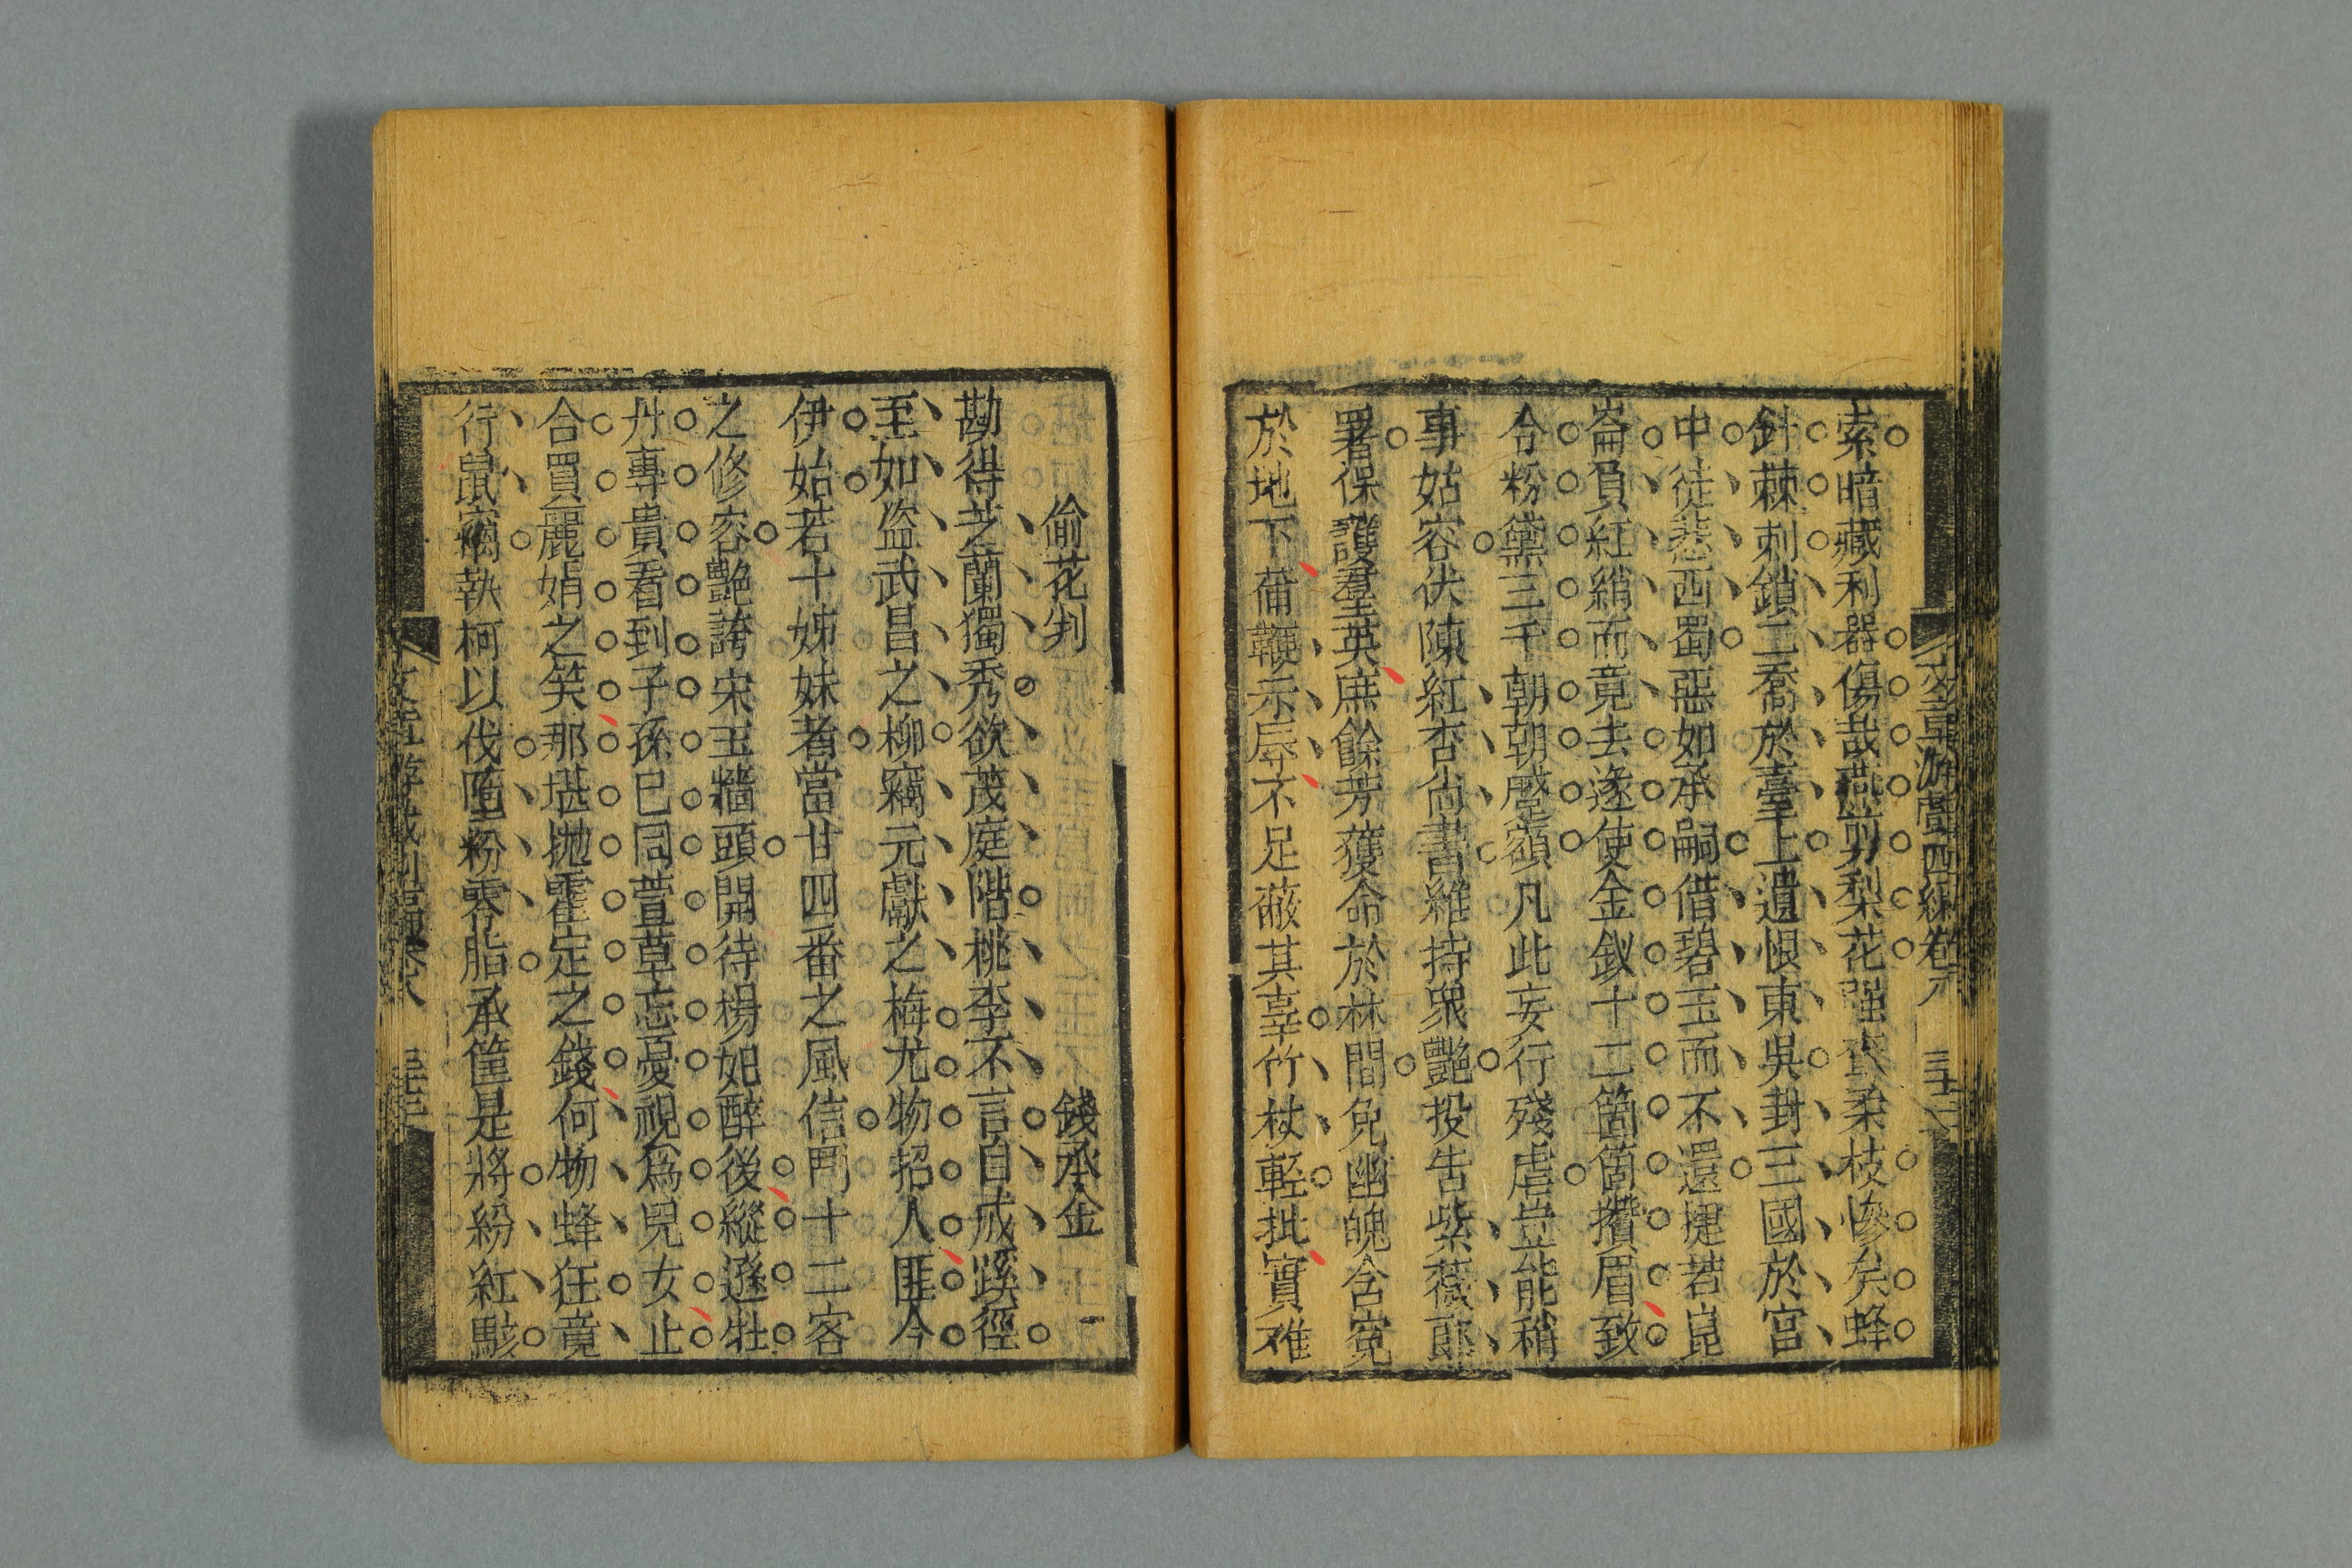 索暗藏利器傷哉燕剪梨花強賚柔枝慘矣蜂
針棘刺鎖二喬於臺上遺恨東吳封三國於宮
中徒悲西蜀惡如承嗣借碧玉而不還捷若崑
崙負紅綃而竟去遂使金釵十二箇箇攢眉致
令粉黛三千朝朝蹙額凡此妄行殘虐豈能稍
事姑容伏陳紅杏尚書維持衆艷投告紫薇郎
署保護羣英庶餘芳獲命於林間免幽魄含寃
於地下蒲鞭示辱不足蔽其辜竹杖輕批實难
偷花判
錢承金
勘得芝蘭獨秀欲茂庭階桃李不言自成蹊徑
至如盜武昌之柳竊元獻之梅尤物招人匪今
伊始若十姊妹者當廿四番之風信鬥十二客
之修容艷誇宋玉牆頭開待楊妃醉後縱遜牡
丹專貴看到子孫已同萱草忘憂視爲兒女止
合買麗娟之笑那堪拋霍定之錢何物蜂狂竟
行鼠竊執柯以伐墮粉零脂承筐是將紛紅駭